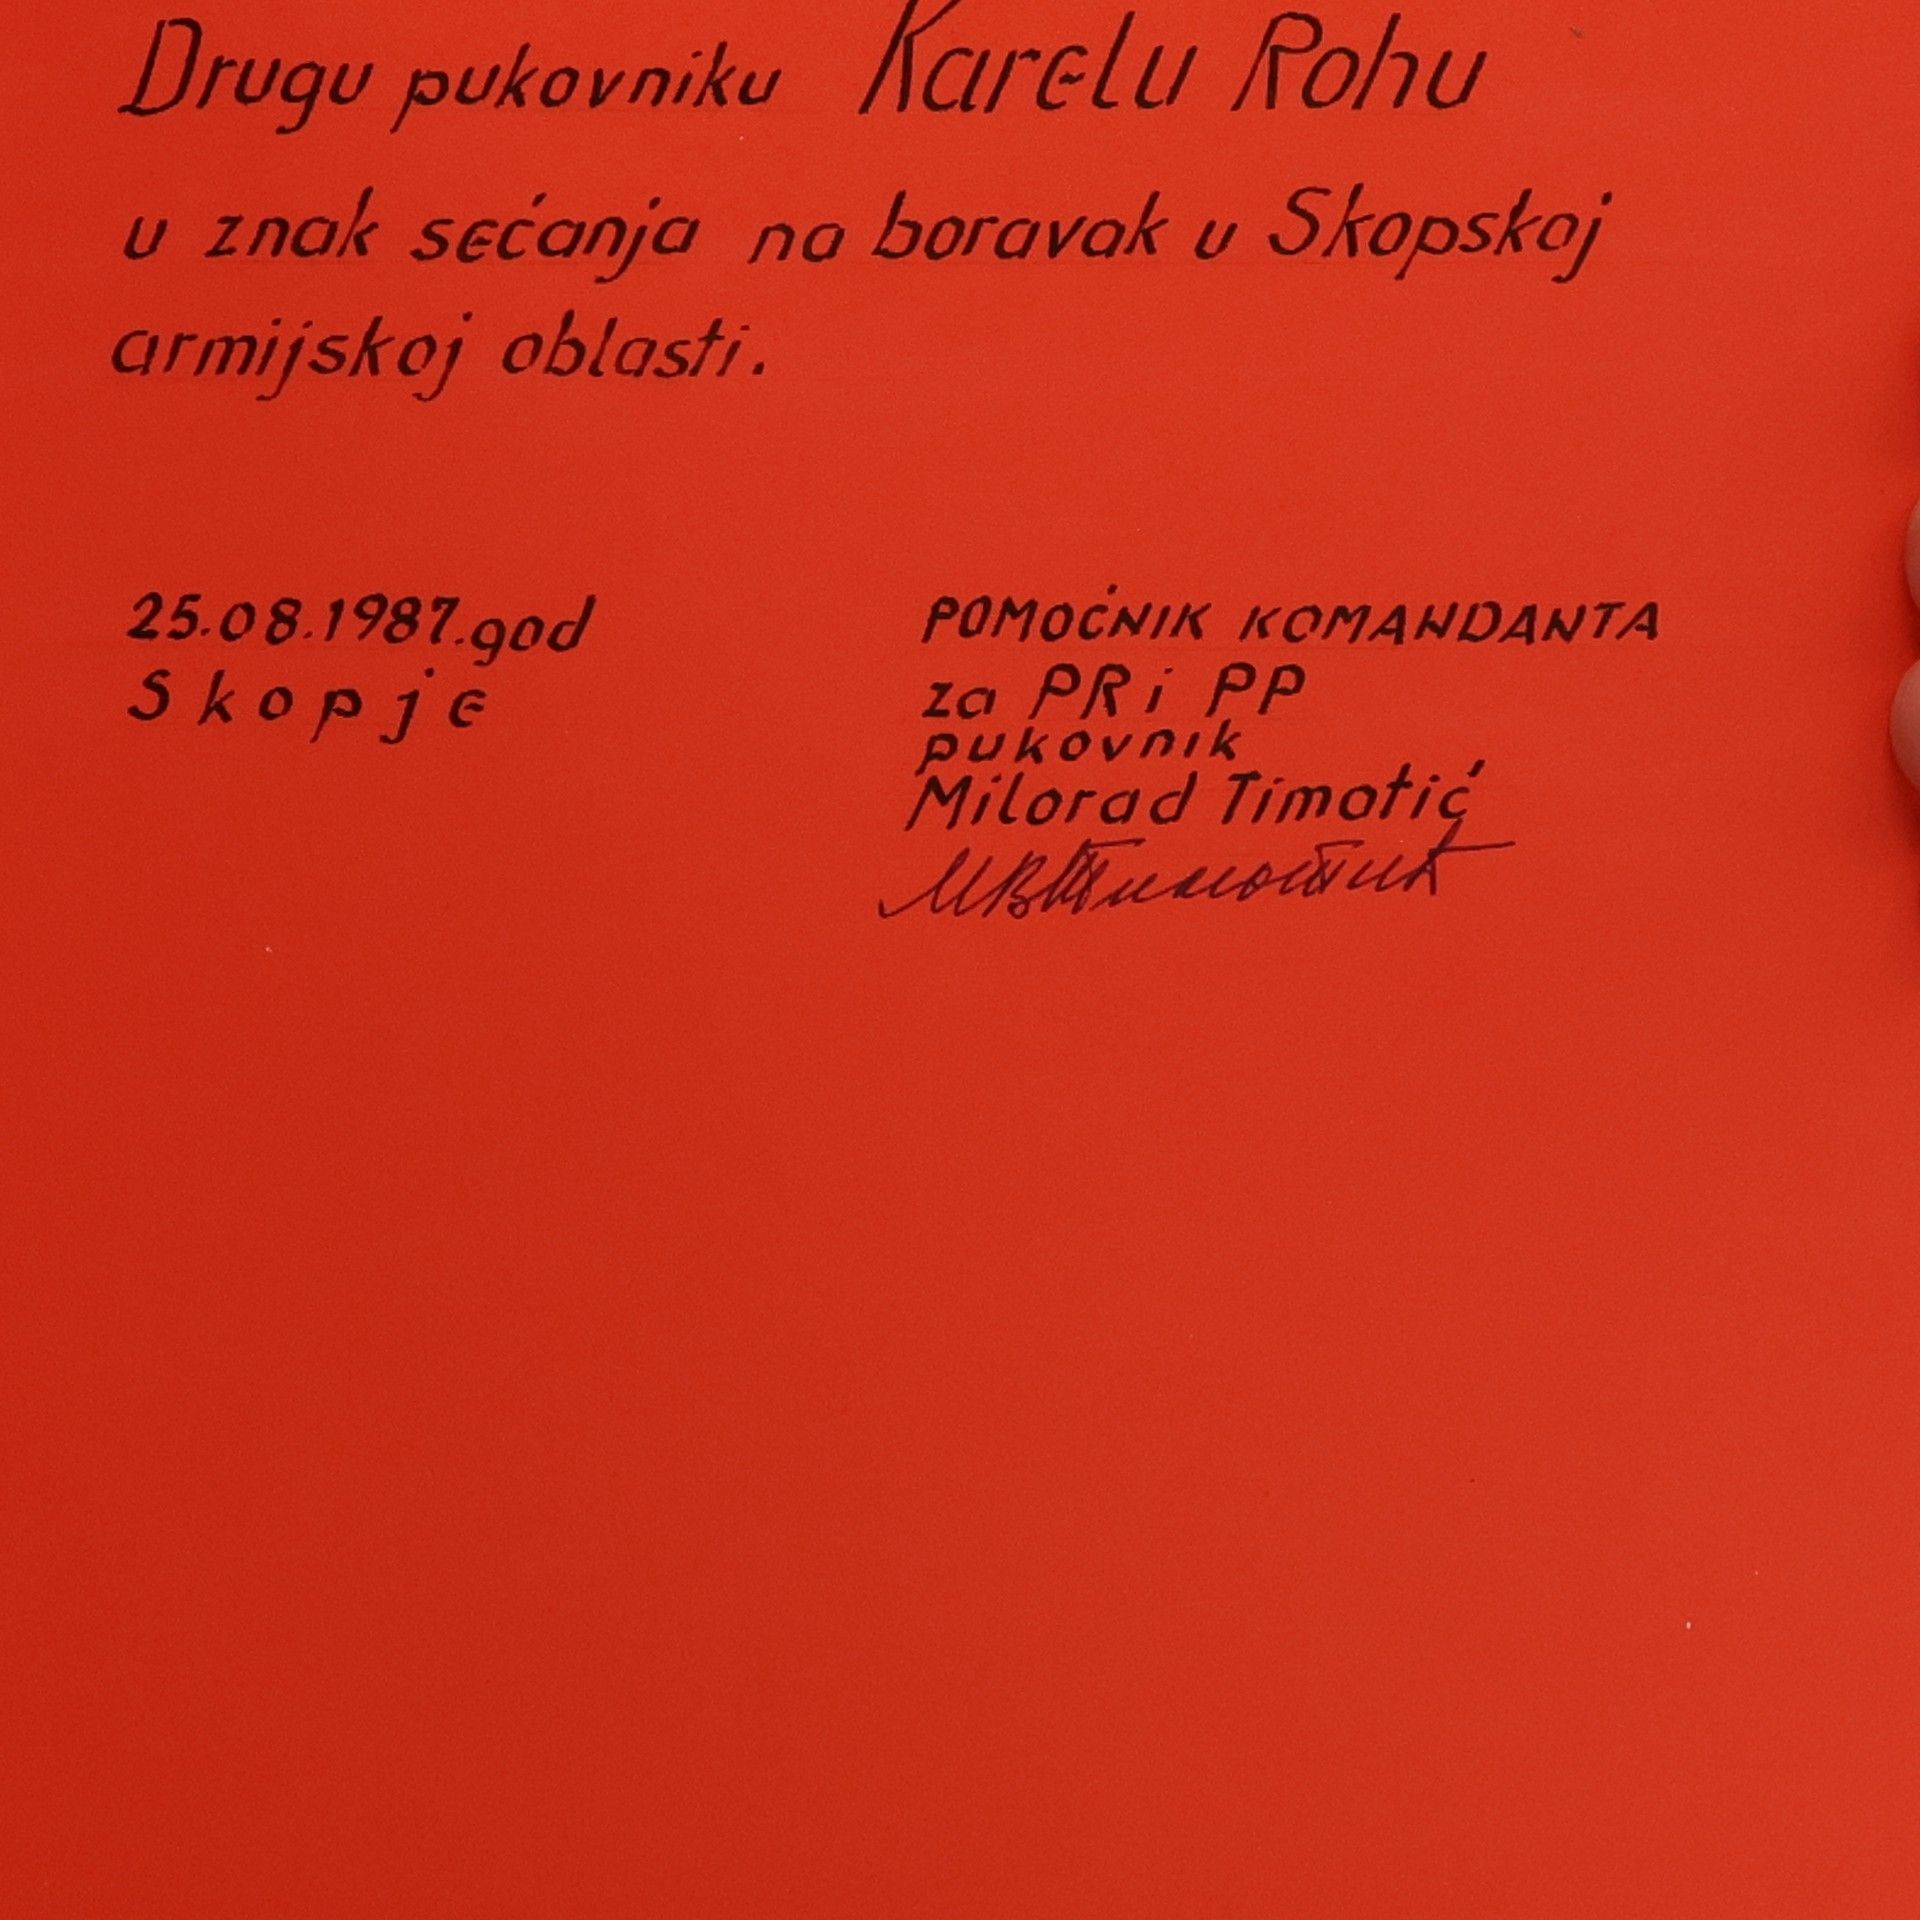 Drugu pukovniku Karelu Rohu
u znak sećanja na boravak u Skopskoj
armijskoj oblasti.
25.08.1987.god
Skopje
POMOĆNIK KOMANDANTA
za PR i PP
pukovnik
Milorad Timotić